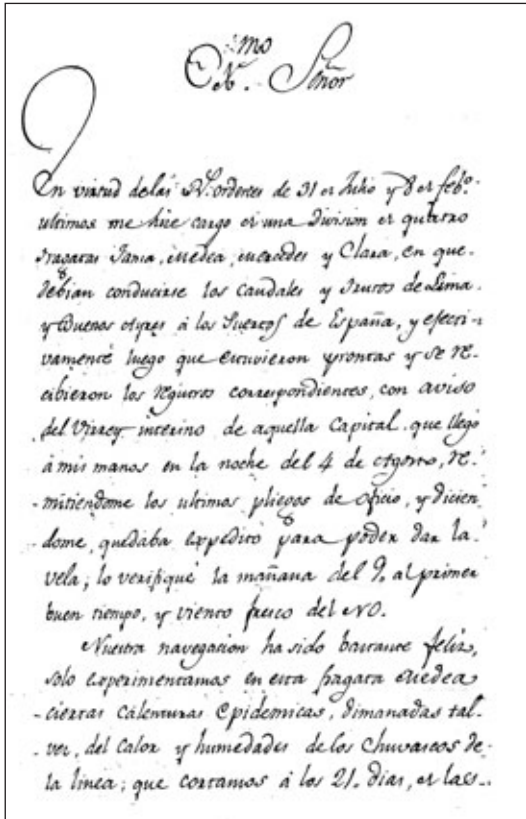 Exmo Señor
En virtud de las Rs. ordenes de 31 de Julio y 8 de febo.
ultimos me hice cargo de una Division de quatro
fragatas Fama, Medea, Mercedes y Clara, en que
debian conducirse los caudales y frutos de Lima
y Buenos Ayres á los Puertos de España, y efecti-
vamente luego que estuvieron prontas y se re-
cibieron los registros correspondientes, con aviso
del Virrey interino de aquella Capital, que llegó
á mis manos en la noche del 4 de Agosto, re-
mitiendome los ultimos pliegos de oficio, y dicien
dome, quedaba expedito para poder dar la
vela; lo verifiqué la mañana del 9. al primer
buen tiempo, y viento fresco del NO.
Nuestra navegacion ha sido bastante feliz,
solo experimentamos en esta fragata Medea
ciertas calenturas epidemicas, dimanadas tal-
vez, del calor y humedades de los chuvascos de
la linea; que cortamos á los 21. dias, de las